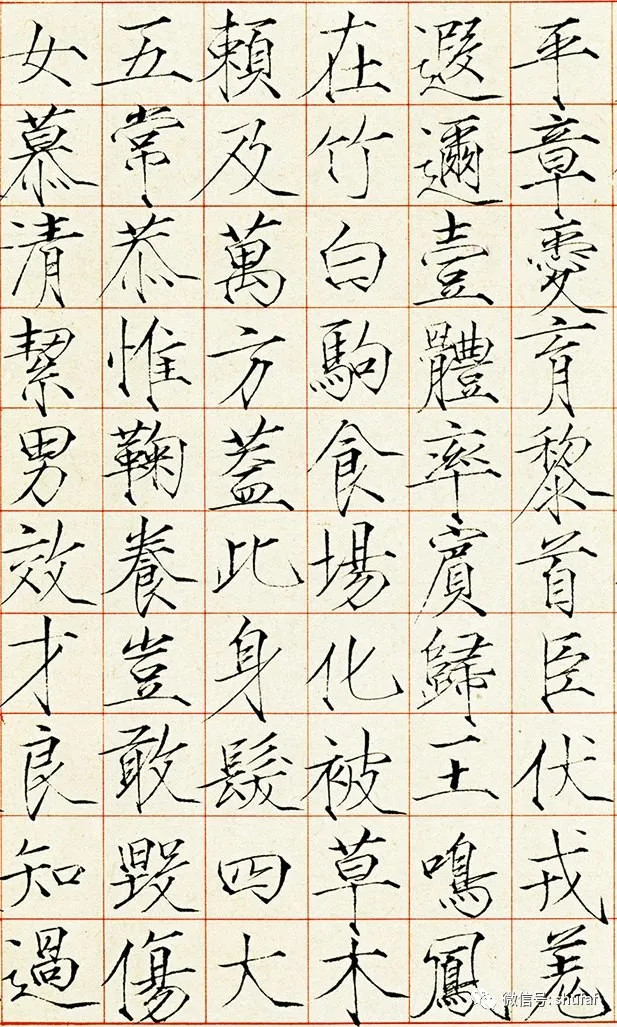 平章愛育黎首臣伏戎羌
遐邇壹體率賓歸王鳴鳳
在竹白駒食場化被草木
賴及萬方蓋此身髮四大
五常恭惟鞠養豈敢毀傷
女慕清絜男效才良知過
微信号: